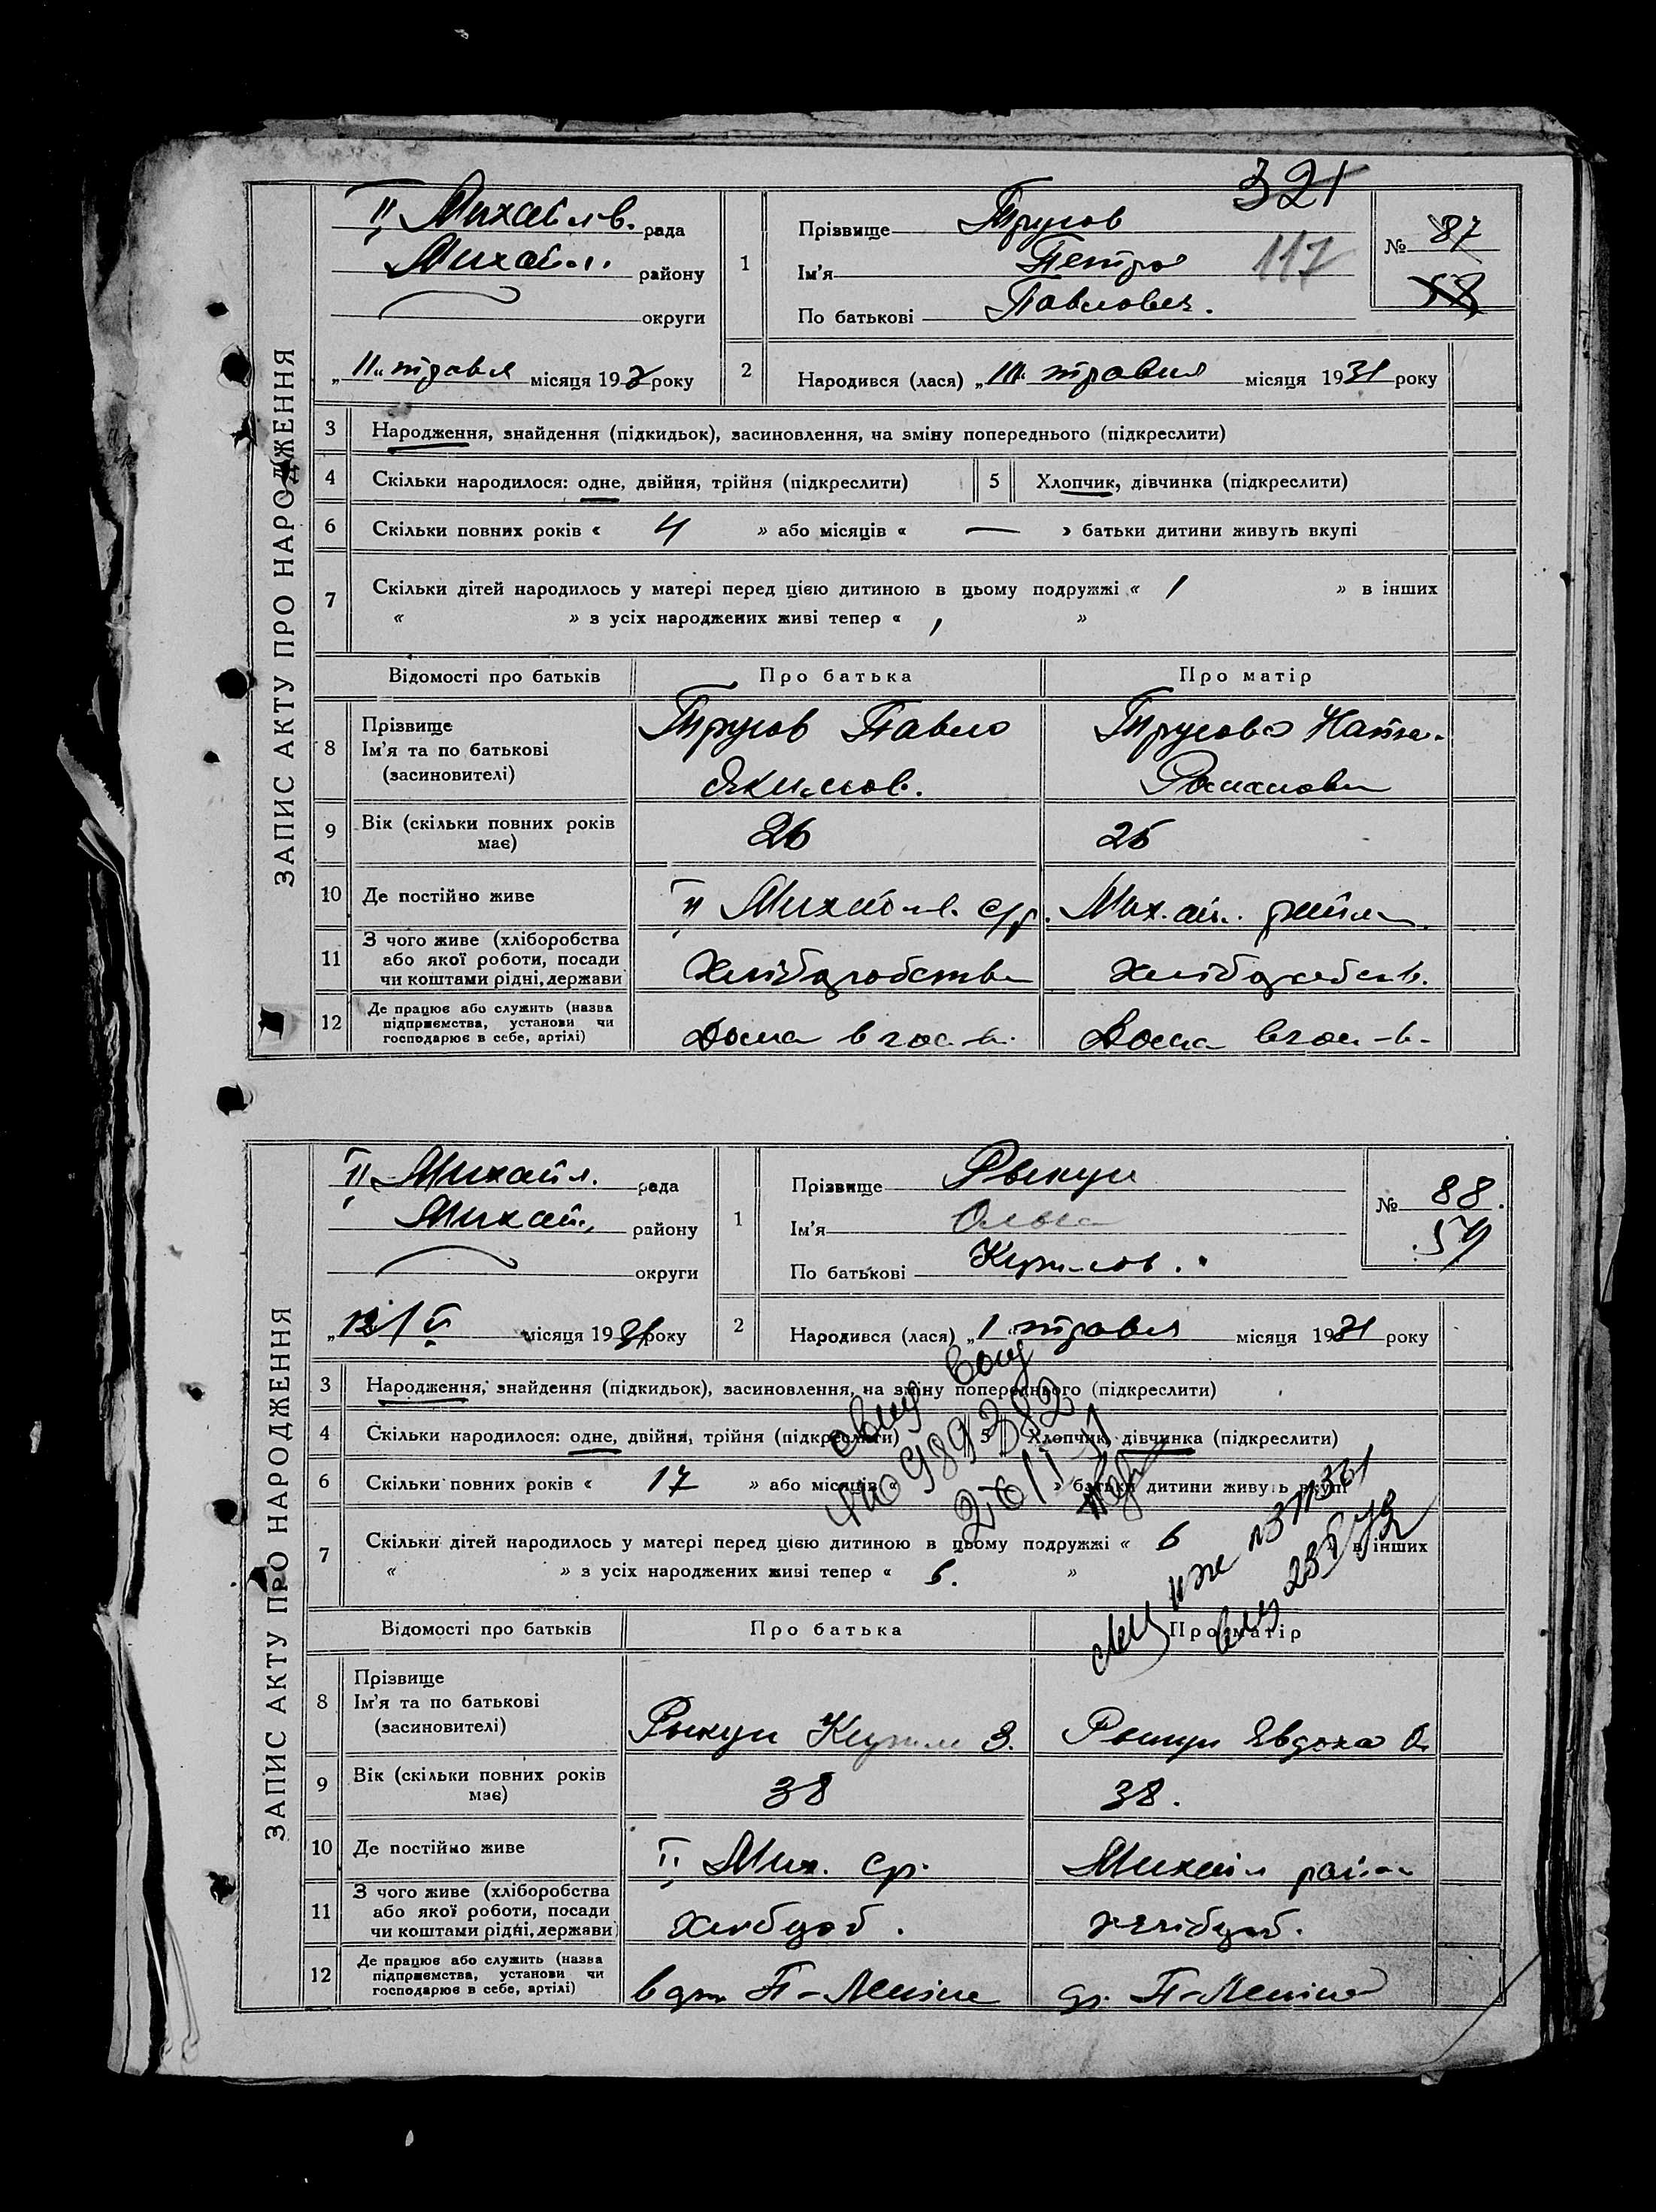 321
ЗАПИС АКТУ ПРО НАРОДЖЕННЯ
II Михайлів. рада
Михайл. району
округи
„11“ травня місяця 193 року
1
Прізвище Трусов
Ім'я Петро
117
По батькові Павлович.
№ 87
58
2
Народився (лася) „10“ травня місяця 1931 року
3 Народження, знайдення (підкидьок), засиновлення, на зміну попереднього (підкреслити)
4 Скільки народилося: одне, двійня, трійня (підкреслити) 5 Хлопчик, дівчинка (підкреслити)
6 Скільки повних років « 4 » або місяців « — » батьки дитини живуть вкупі
7 Скільки дітей народилось у матері перед цією дитиною в цьому подружжі « 1 » в інших
« » з усіх народжених живі тепер « 1 »
Відомості про батьків Про батька Про матір
8 Прізвище
Ім'я та по батькові
(засиновителі)
Трусов Павло
Якимов.
Трусова
Романовна
9 Вік (скільки повних років має) 26 26
10 Де постійно живе II Михайл. с/р. Мих.ай. район
11 З чого живе (хліборобства
або якої роботи, посади
чи коштами рідні, держави
Хліборобства Хлібороб
12 Де працює або служить (назва
підприємства, установи чи
господарює в себе, артілі)
Дома в гос-в. Дома в гос-в.
ЗАПИС АКТУ ПРО НАРОДЖЕННЯ
II Михайл. рада
Михай. району
округи
„12/V місяця 1931 року
1
Прізвище Рыкун
Ім'я Ольга
По батькові Кирилов.
№ 88.
59
2
Народився (лася) „1“ травня місяця 1931 року
3 Народження, знайдення (підкидьок), засиновлення, на зміну попереднього (підкреслити)
4 Скільки народилося: одне, двійня, трійня (підкреслити) 5 Хлопчик, дівчинка (підкреслити)
6 Скільки повних років « 17 » або місяців « » батьки дитини живуть вкупі
7 Скільки дітей народилось у матері перед цією дитиною в цьому подружжі « 6 » в інших
« » з усіх народжених живі тепер « 6. »
Відомості про батьків Про батька Про матір
8 Прізвище
Ім'я та по батькові
(засиновителі)
Рыкун Кирило З. Рыкун Явдоха О.
9 Вік (скільки повних років має) 38 38.
10 Де постійно живе II Мих. ср. Михайл район
11 З чого живе (хліборобства
або якої роботи, посади
чи коштами рідні, держави)
Хлібороб. Хлібороб.
12 Де працює або служить (назва
підприємства, установи чи
господарює в себе, артілі)
в арт. П-Леніна ар. П-Леніна